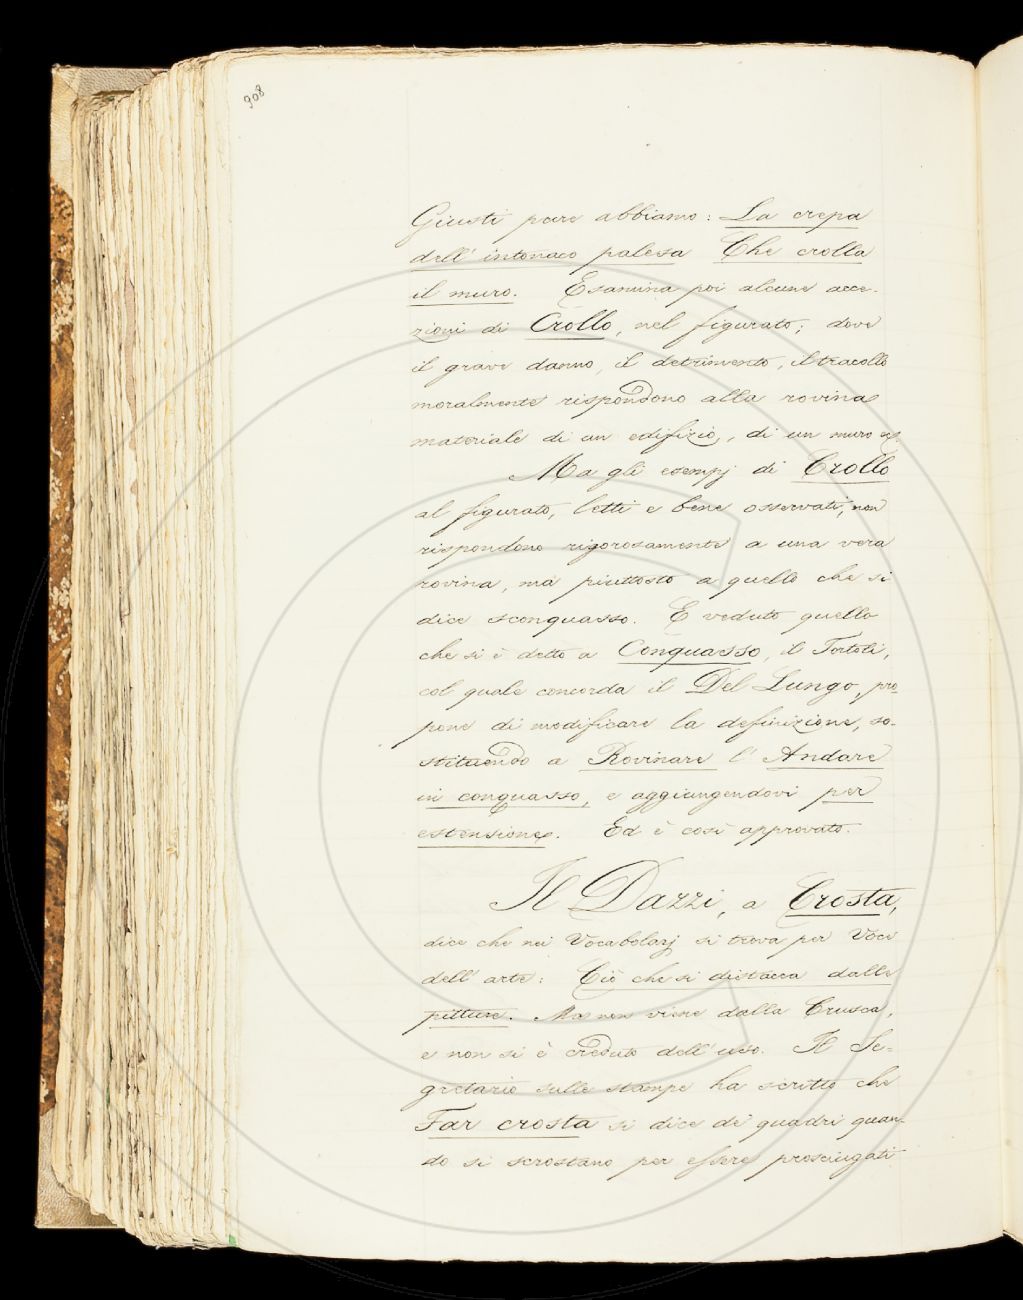 908
Giusti pure abbiamo: La crepa
dell'intonaco palesa Che crolla
il muro. Esamina poi alcune acce-
zioni di Crollo, nel figurato; dove
il grave danno, il detrimento, il tracollo
moralmente rispondono alla rovina
materiale di un edifizio, di un muro ec.
Ma gli esempj di Crollo
al figurato, letti e bene osservati, non
rispondono rigorosamente a una vera
rovina, ma piuttosto a quello che si
dice sconquasso. E veduto quello
che si è detto a Conquasso, il Tortoli,
col quale concorda il Del Lungo, pro
pone di modificare la definizione, so-
stituendo a Rovinare l'Andare
in conquasso, e aggiungendovi per
estensione. Ed è così approvato.
Il Dazzi, a Crosta,
dice che nei Vocabolarj si trova per Voce
dell'arte: Ciò che si distacca dalle
pitture. Ma non viene dalla Crusca,
e non si è creduto dell'uso. Il Se-
gretario sulle stampe ha scritto che
Far crosta si dice de' quadri quan-
do si scrostano per essere prosciugati